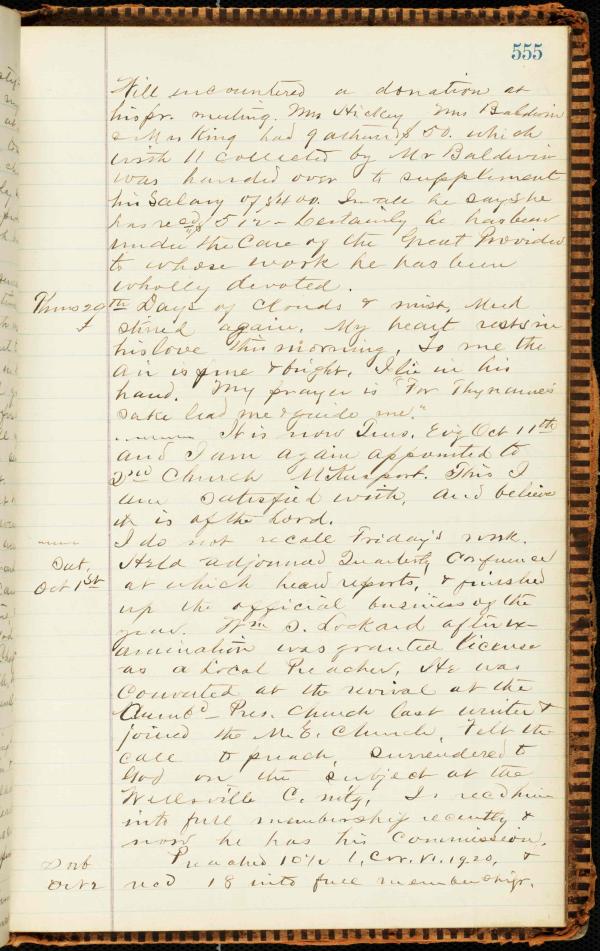 555
Will encountered a donation at
his pr. meeting. Mrs Hickey Mrs Baldwin
& Mrs King had gathered $50. which
with 11 collected by Mr Baldwin
was handed over to supplement
his Salary of $400. In all he says he
has recd 512 - Certainly he has been
under the Care of the Great Provider
to whose work he has been
wholly devoted.
Thurs 29th Days of Clouds & mist, Mud
stirred again. My heart rests in
his love this morning. To me the
air is pure & bright. I lie in his
hand. My prayer is "For Thy name's
sake lead me & guide me."
It is now Tues. Evg Oct 11th
and I am again appointed to
2nd Church McKeesport. This I
am satisfied with, and believe
it is of the Lord.
I do not recall Friday's work.
Sat. Held adjourned Quarterly Conference
Oct 1st at which heard reports, & finished
up the official business of the
year. Wm S. Lockard after ex-
amination was granted license
as a Local Preacher. He was
Converted at the revival at the
Cumbd - Pres. Church last winter &
joined the M.E. Church, Felt the
call to preach, surrendered to
God on the subject at the
Wellsville C. mtg, I recd him
into full membership recently &
now he has his Commission.
Sab Preached 10 1/2 1, Cor. VI. 19.20, &
Oct 2 recd 18 into full membership.